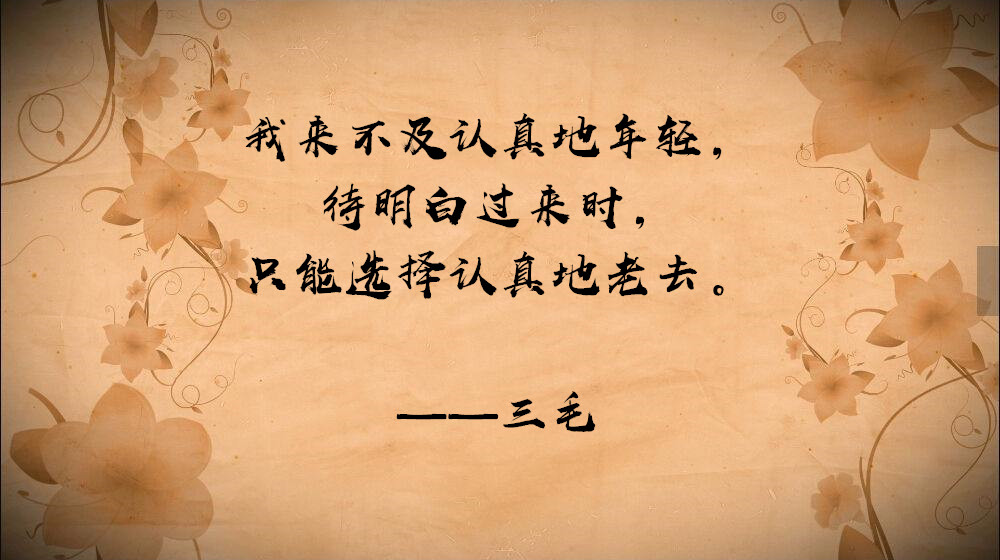 我来不及认真地年轻，
待明白过来时，
只能选择认真地老去。
——三毛